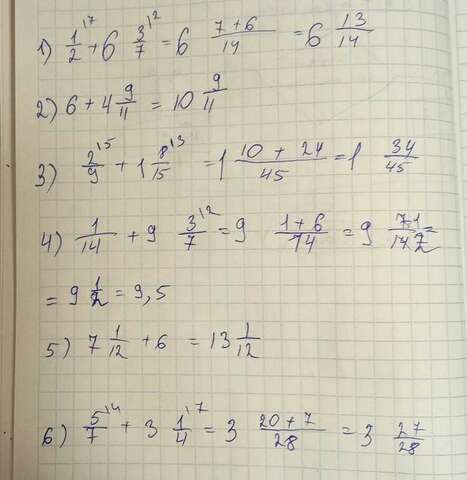 1) 1/2 '7 + 6 3/7 '2 = 6 (7+6)/14 = 6 13/14
2) 6 + 4 9/11 = 10 9/11
3) 2/9 '5 + 1 8/15 '3 = 1 (10 + 24)/45 = 1 34/45
4) 1/14 + 9 3/7 '2 = 9 (1+6)/14 = 9 7 1/14 2 =
= 9 1/2 = 9,5
5) 7 1/12 + 6 = 13 1/12
6) 5/7 '4 + 3 1/4 '7 = 3 (20+7)/28 = 3 27/28